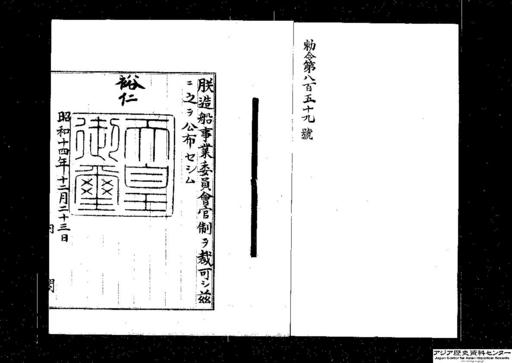 勅令第八百五十九號
朕造船事業委員會官制ヲ裁可シ茲
ニ之ヲ公布セシム
裕仁
天皇御璽
昭和十四年十二月二十三日
内閣
アジア歴史資料センター
Japan Center for Asian Historical Records